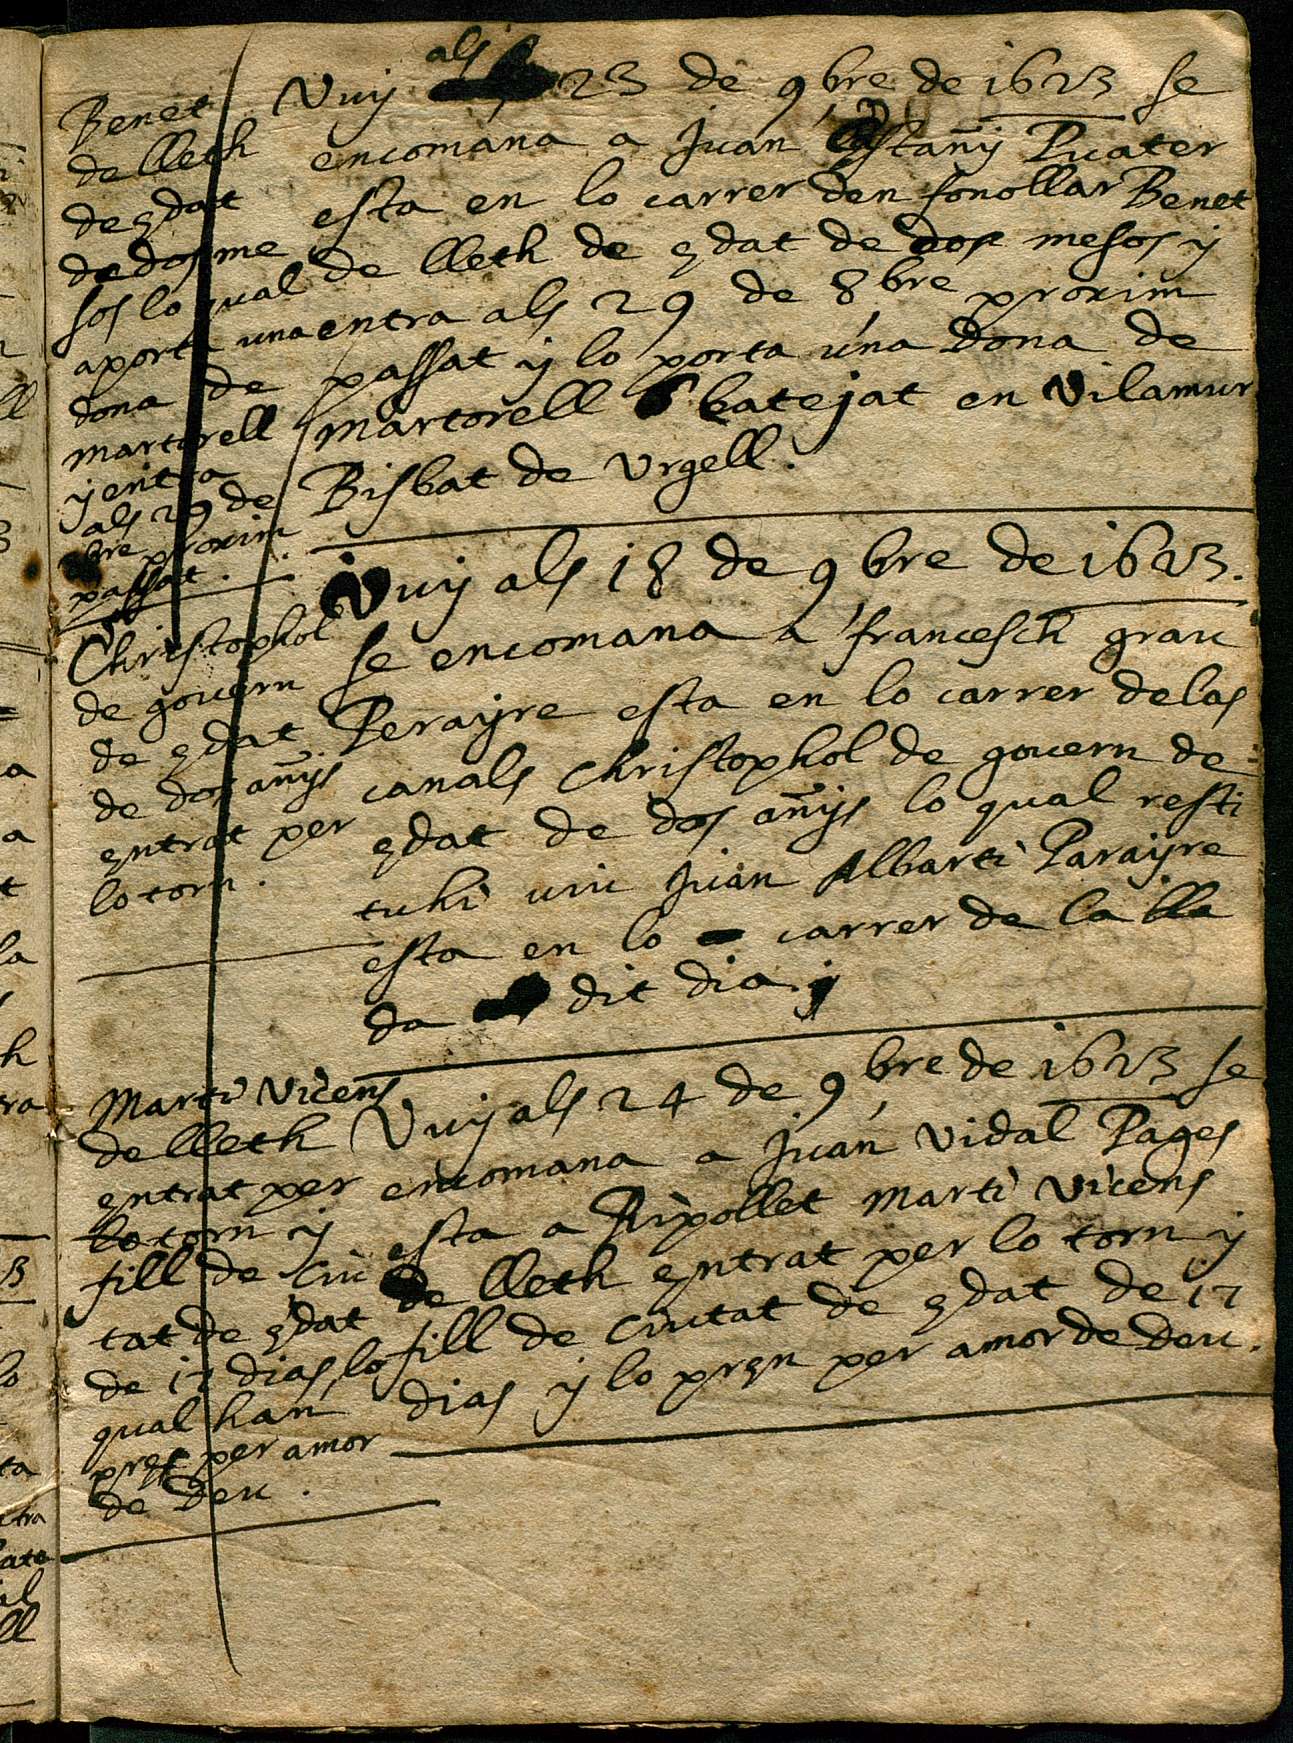 Benet
de lleth
de edat
de dos me
sos lo qual
aporta una
dona de
martorell
y entra
als 29 de
bre proxim
passat.
Vuy als 23 de 9bre de 1623 se
encomana a Juan Castañy Puater
esta en lo carrer den fonollar Benet
de lleth de edat de dos mesos y
entra als 29 de 8bre proxim
passat y lo porta una Dona de
martorell batejat en Vilamur
Bisbat de Vrgell.
Christophol
de govern
de edat
de dos añys
entrat per
lo torn.
Vuy als 18 de 9bre de 1623.
se encomana a francesch grau
Perayre esta en lo carrer de las
canals Christophol de govern de
edat de dos añys lo qual resti
tuhi Juan Albarti Parayre
esta en lo carrer de la lle
da dit dia y
Marti Vicens
de lleth
entrat per
lo torn y
fill de ciu
tat de edat
de 17 dias lo
qual han
pres per amor
de Deu.
Vuy als 24 de 9bre de 1623 se
encomana a Juan Vidal Pages
esta a Ripollet Marti Vicens
de lleth entrat per lo torn y
fill de ciutat de edat de 17
dias y lo pren per amor de Deu.